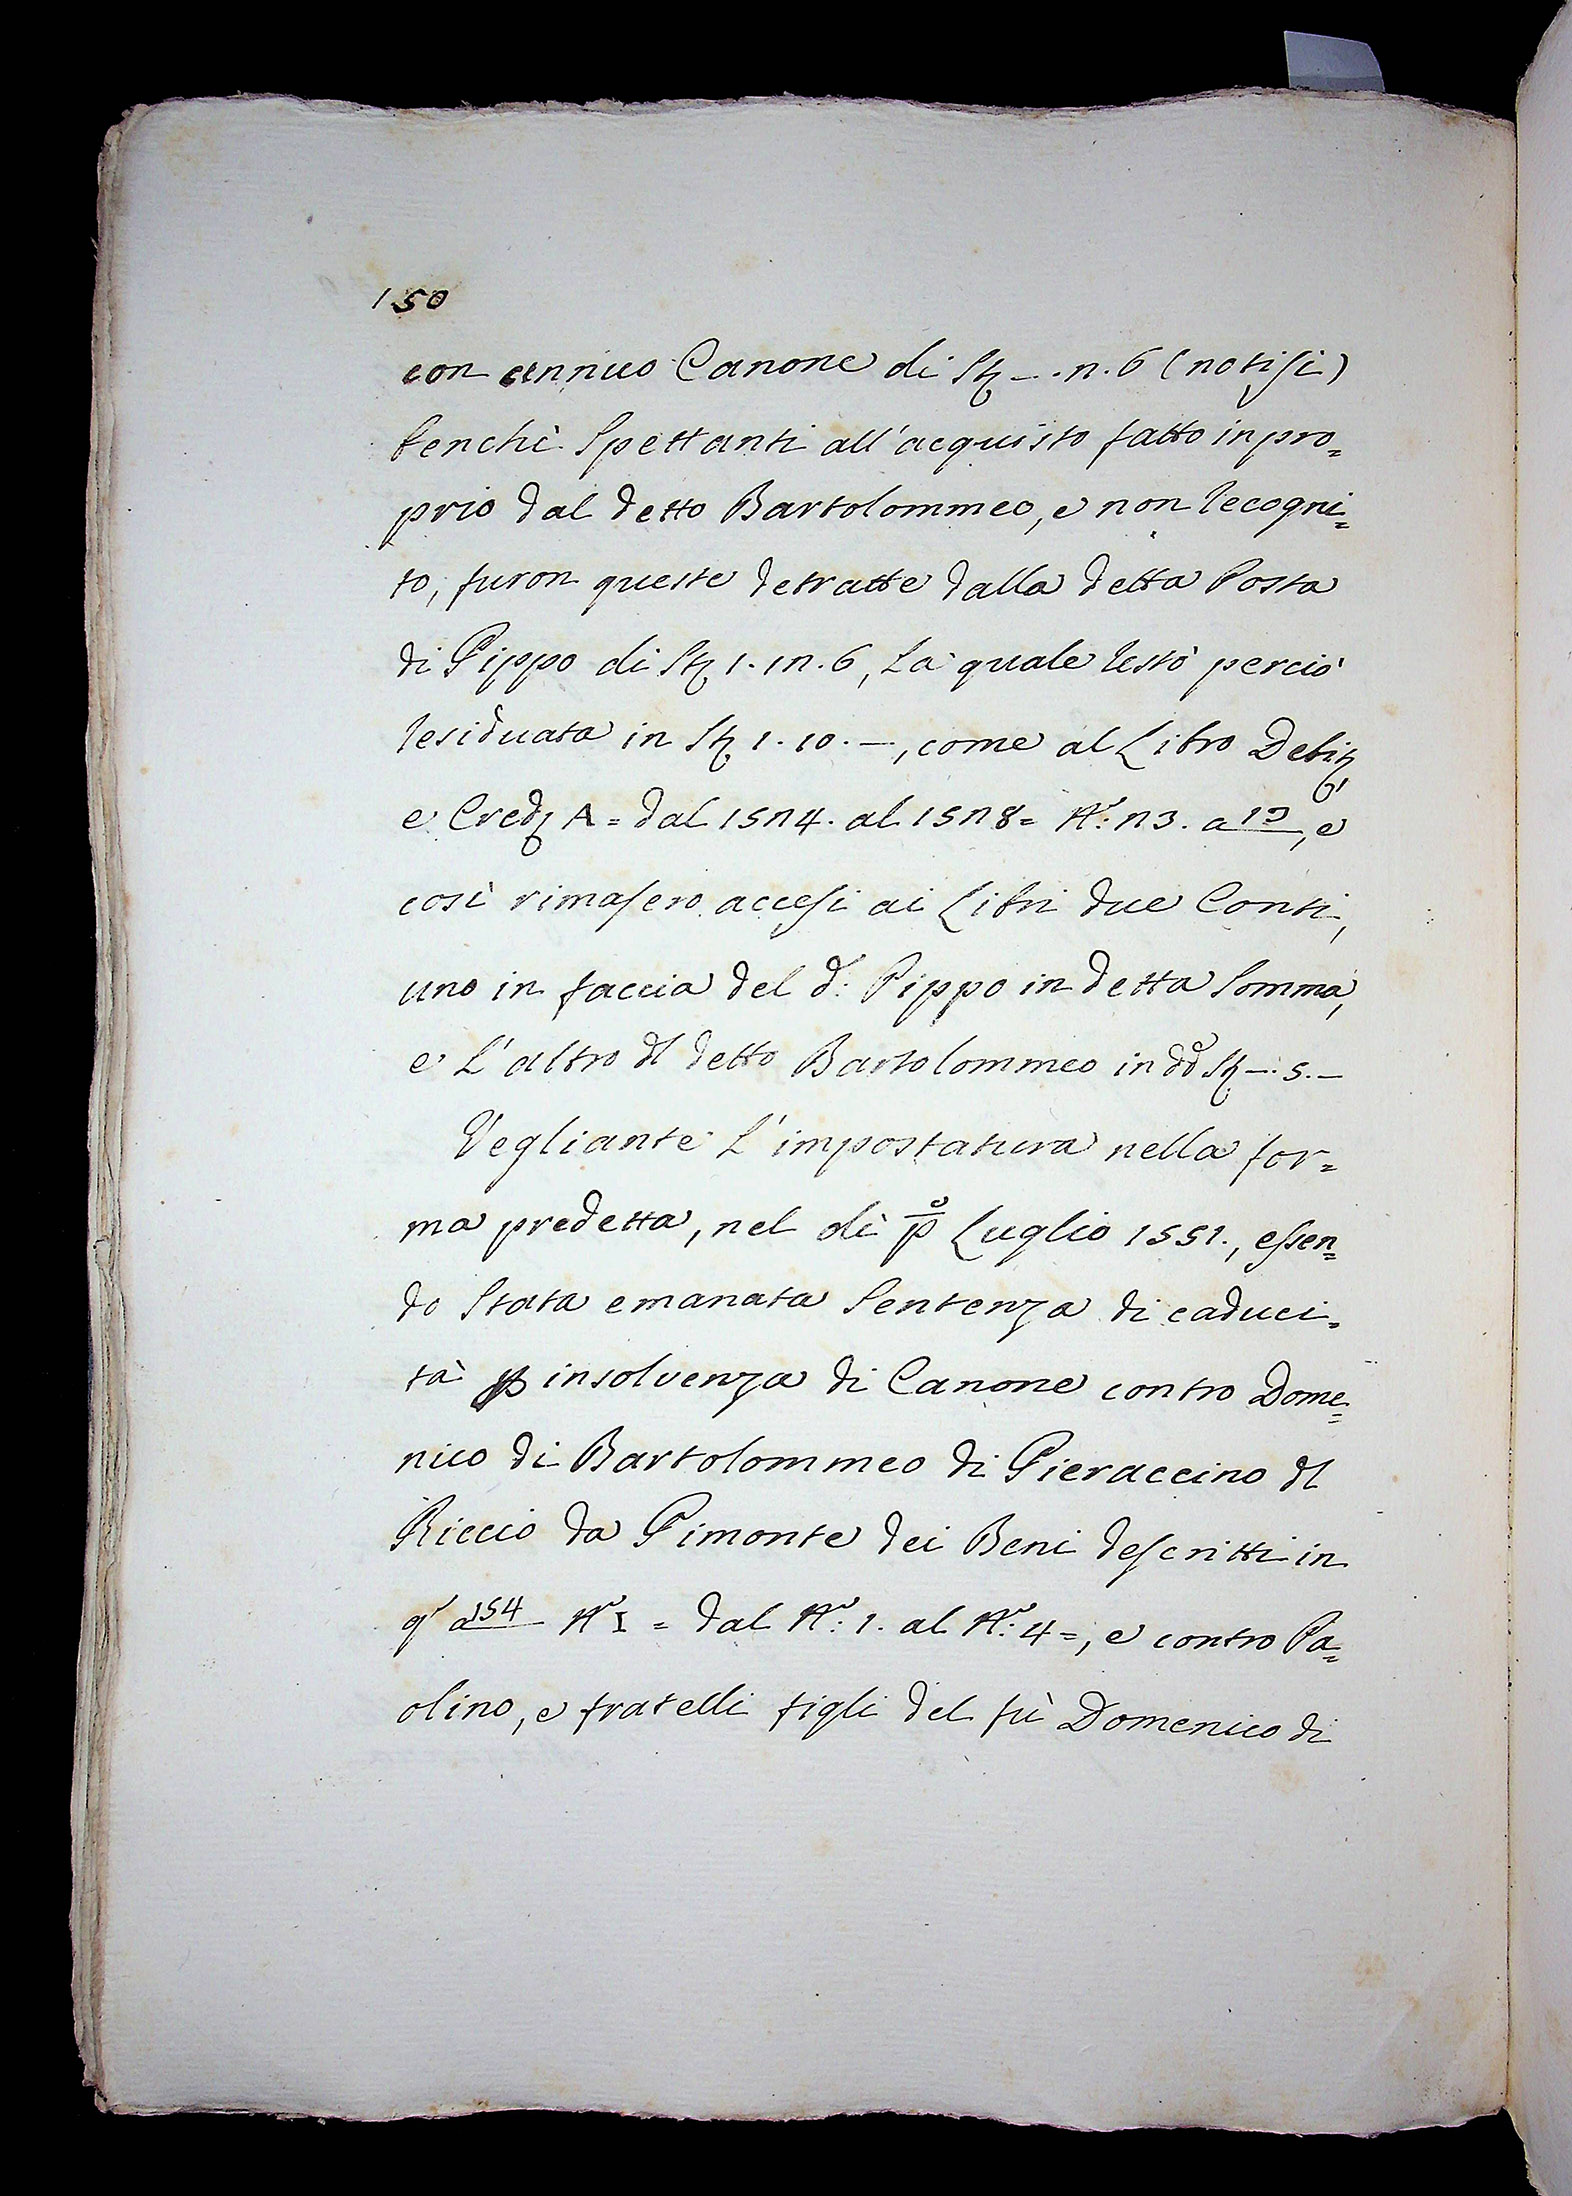 150
con annuo Canone di St -. 7. 6 (notisi)
benchè Spettanti all'acquisto fatto in pro=
prio dal detto Bartolommeo, e non recogni=
to, furon queste detratte dalla detta Posta
di Pippo di St 1. 17. 6, La quale restò perciò
residuata in St 1. 10. -, come al Libro Debit
e Cred A = dal 1574. al 1578 = No: 73. a 19, e
così rimasero accesi ai Libri due Conti,
uno in faccia del do: Pippo in detta Somma,
e L'altro dl detto Bartolommeo in dd St -. 5. -
Vegliante L'impostatura nella for=
ma predetta, nel dì po Luglio 1551., essen=
do Stata emanata Sentenza di caduci=
tà p insolvenza di Canone contro Dome=
nico di Bartolommeo di Pieraccino dl
Riccio da Pimonte dei Beni descritti in
qo a 154 No I = dal No: 1. al No: 4 =, e contro Pa=
olino, e fratelli figli del fù Domenico di